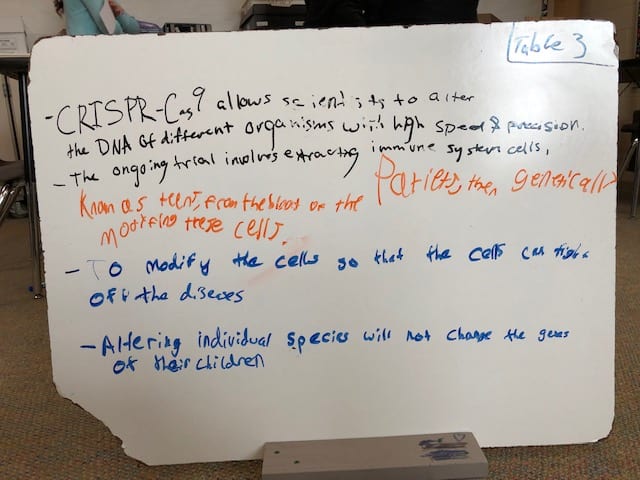 Table 3
-CRISPR-Cas9 allows scientists to alter
the DNA of different organisms with high speed & precision.
- The ongoing trial involves extracting immune system cells,
Known as tcells, from the blood of the Patiets, then genetically
Modifing these cells.
- To modify the cells so that the cells can fight
off the diseses
- Altering individual species will not change the genes
of their children